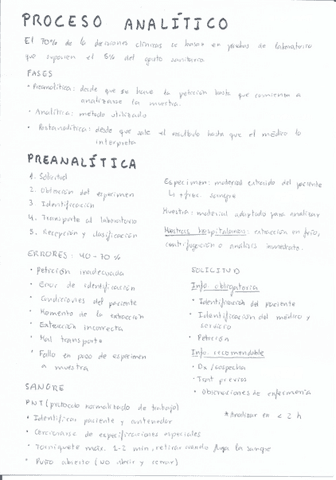 PROCESO ANALÍTICO
El 70% de las decisiones clínicas se basan en pruebas de laboratorio
que suponen el 5% del gasto sanitario
FASES
• Preanalítica: desde que se hace la petición hasta que comienza a
analizarse la muestra.
• Analítica: método utilizado
• Postanalítica: desde que sale el resultado hasta que el médico lo
interpreta
PREANALÍTICA
1. Solicitud
2. Obtención del espécimen
3. Identificación
4. Transporte al laboratorio
5. Recepción y clasificación
Especimen: material extraído del paciente
sangre
Muestra: material adaptado para analizar
Muestras hospitalarias: extracción en frío,
centrifugación o análisis inmediato.
ERRORES: 40-70%
• Petición inadecuada
• Error de identificación
• Condiciones del paciente
• Momento de la extracción
• Extracción incorrecta
• Mal transporte
• Fallo en paso de especimen
a muestra
SOLICITUD
Info. obligatoria
• Identificación del paciente
• Identificación del médico y
servicio
• Petición
Info. recomendable
• Dx/sospecha
• Tant. previos
• Observaciones de enfermería
SANGRE
PNT (protocolo normalizado de trabajo)
* Analizar en < 2 h
• Identificar paciente y contenedor
• Cerciorarse de especificaciones especiales
• Torniquete máx. 1-2 min, retirar cuando fluya la sangre
• Puño abierto (no abrir y cerrar)